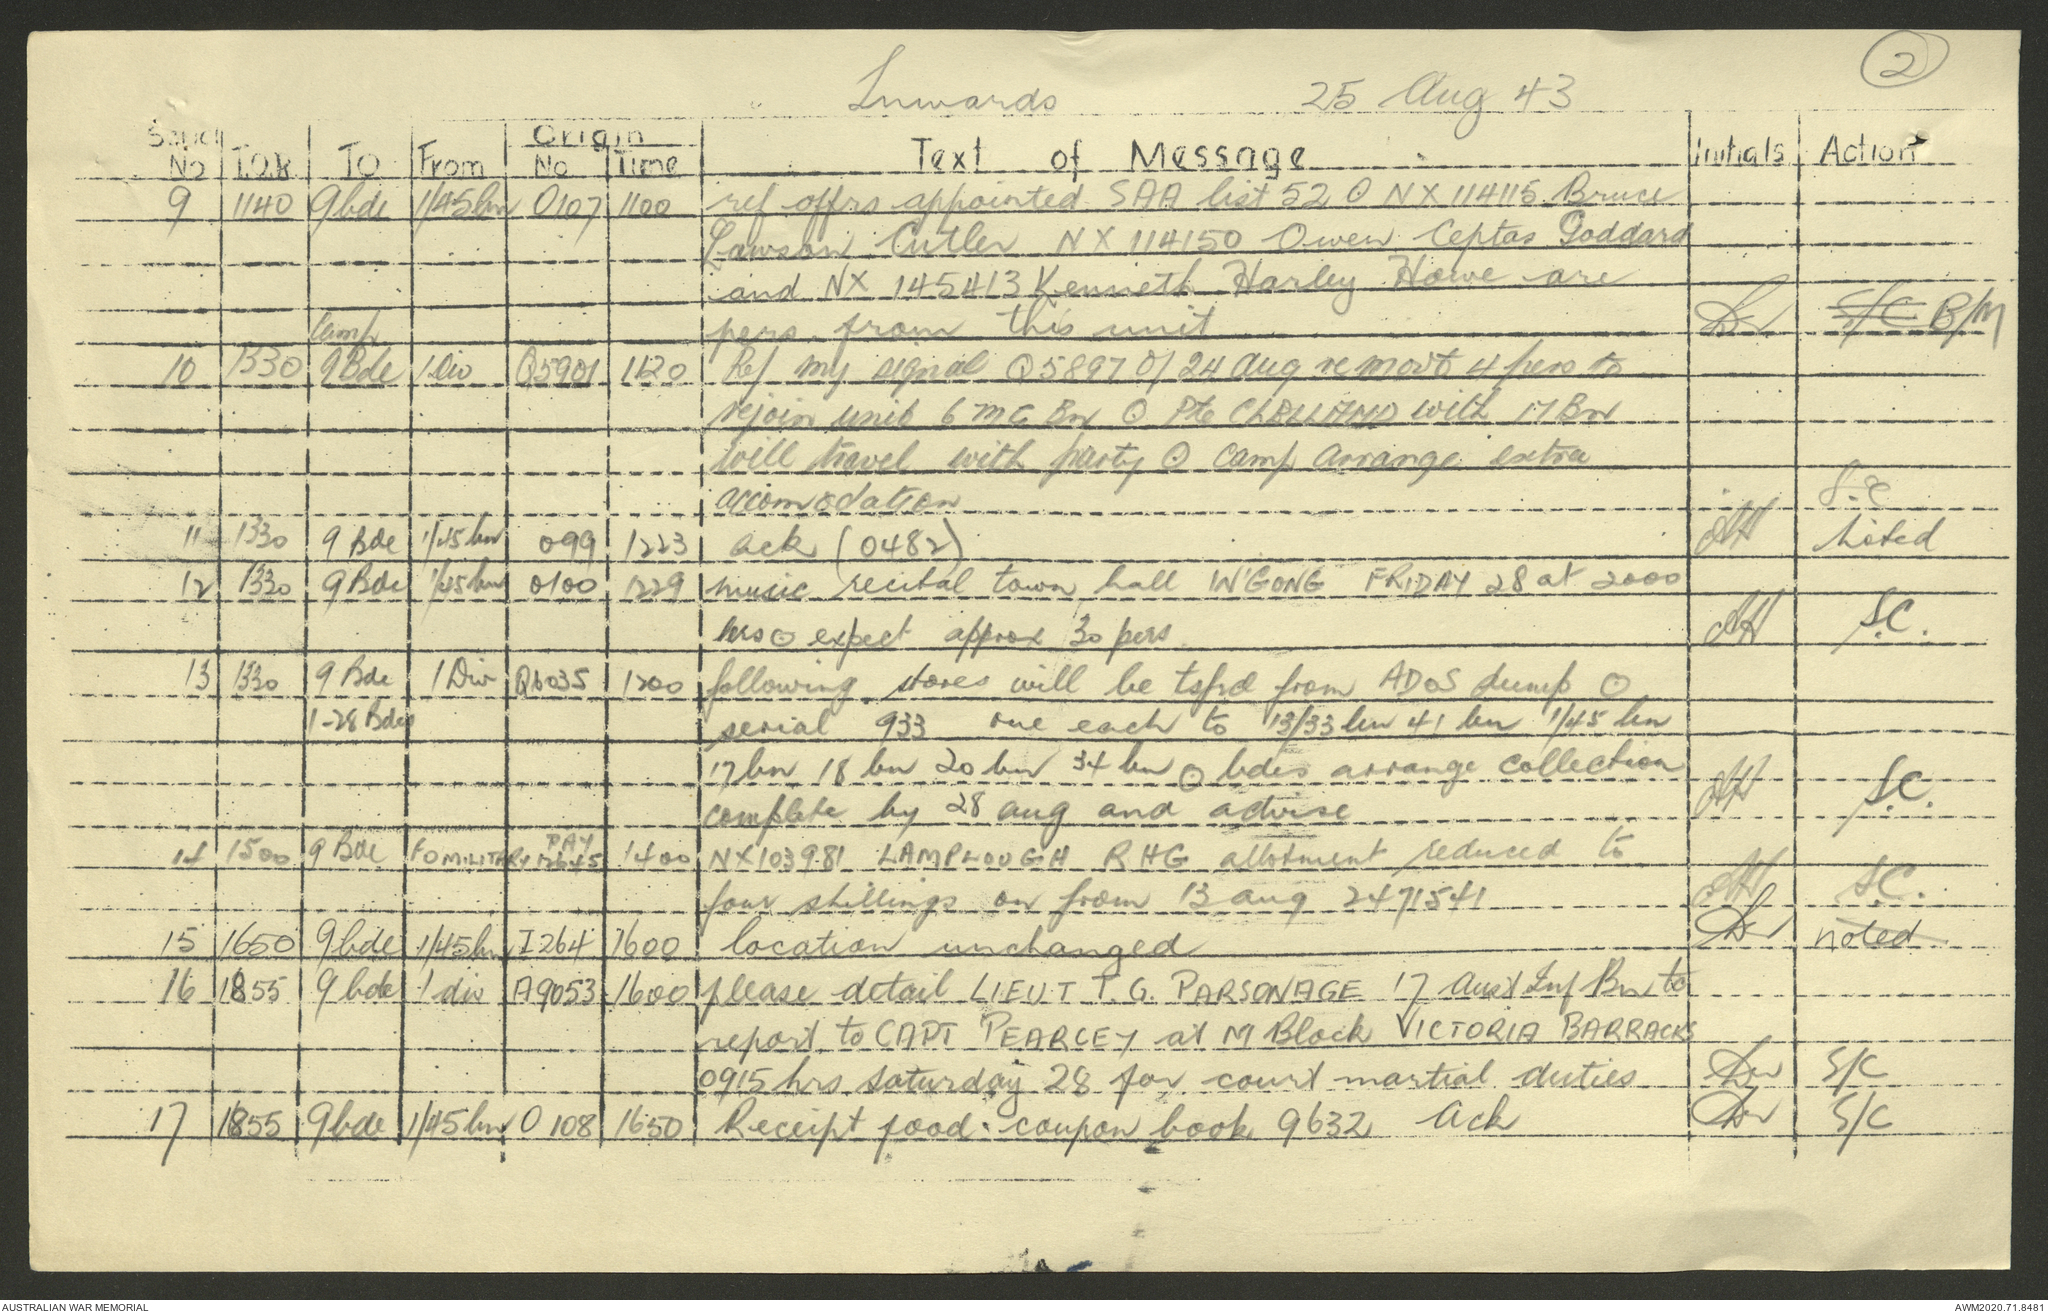 2
Inwards 25 Aug 43
Serial No | T.O.R | TO | From | Origin No | Time | Text of Message | Initials | Action
9 | 1140 | 9 bde | 1/45 bn | O107 | 1100 | ref offrs appointed SAA list 52 ⊙ NX 114115 Bruce
Lawson Cutler NX 114150 Owen Ceptas Goddard
and NX 145413 Kenneth Harley Howe are
pers from this unit | S/C B/M
Camp
10 | 1330 | 9 Bde | 1 Div | Q5901 | 1120 | Ref my signal Q5897 of 24 Aug re movt 4 pers to
rejoin unit 6 MG Bn ⊙ Pte with 17 Bn
will travel with party ⊙ Camp arrange extra
accomodation | S.C
11 | 1330 | 9 Bde | 1/45 bn | 099 | 1223 | ack (0482) | Noted
12 | 1330 | 9 Bde | 1/45 bn | 0100 | 1229 | music recital town hall W'GONG FRIDAY 28 at 2000
hrs ⊙ expect approx 30 pers | S.C.
13 | 1330 | 9 Bde | 1 Div | Q6035 | 1200 | following stores will be tsfrd from ADOS dump ⊙
1-28 Bdes | serial 933 one each to 13/33 bn 41 bn 1/45 bn
17 bn 18 bn 20 bn 34 bn ⊙ bdes arrange collection
complete by 28 aug and advise | S.C.
14 | 1500 | 9 Bde | FOMILITARY | PAY 12645 | 1400 | NX103981 LAMPLOUGH RHG allotment reduced to
four shillings on from 13 aug 2471541 | S.C.
15 | 1650 | 9 bde | 1/45 bn | I264 | 1600 | location unchanged | noted
16 | 1855 | 9 bde | 1 div | A9053 | 1600 | please detail LIEUT T.G. PARSONAGE 17 Aust Inf Bn to
report to CAPT PEARCEY at M Block VICTORIA BARRACKS
0915 hrs saturday 28 for court martial duties | S/C
17 | 1855 | 9 bde | 1/45 bn | O 108 | 1650 | Receipt food coupon book 9632 Ack | S/C
AUSTRALIAN WAR MEMORIAL
AWM2020.71.8481